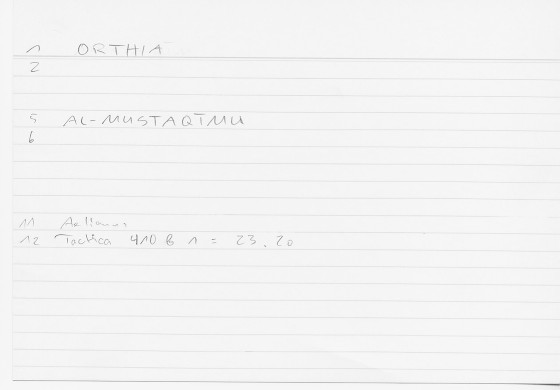 1 ORTHIA
2
5 AL-MUSTAQĪMU
6
11 Aelianus
12 Tactica 410 B 1 = 23.20